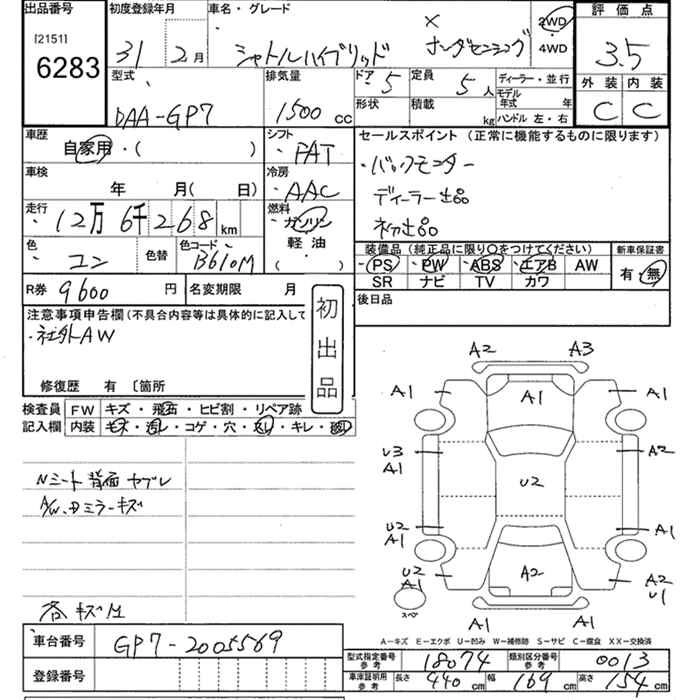 出品番号 初度登録年月 車名・グレード 評価点
[2151] 31 2月 シャトルハイブリッド × ホンダセンシング 2WD 3.5
6283 4WD
型式 排気量 ドア 5 定員 5人 ディーラー・並行 外装 内装
モデル年式 年
DAA-GP7 1500cc 形状 積載 kg ハンドル 左・右 C C
車歴 シフト セールスポイント (正常に機能するものに限ります)
自家用・( ) FAT ・バックモニター
車検 冷房
年 月( 日) AAC ディーラー出品
走行 12万6千268km 燃料 ガソリン 初出品
色 色替 色コード 軽油 装備品 (純正品に限り○をつけてください) 新車保証書
コン B610M ( ) PS PW ABS エアB AW 有・無
SR ナビ TV カワ
R券 9600円 名変期限 月 後日品
注意事項申告欄(不具合内容等は具体的に記入して 初出品
・社外AW
修復歴 有 〔箇所
検査員記入欄 FW キズ・飛石・ヒビ割・リペア跡
内装 キズ・汚レ・コゲ・穴・スリ・キレ・
A2 A3
A1 A1 A1
U3 A1 A2
U2
U2 A1 A1
U2 A1 A2 A2 U1
スペア
A1 A1
Nシート背面ヤブレ
ミラーキズ
キズ
A-キズ E-エクボ U-凹み W-補修跡 S-サビ C-腐食 XX-交換済
車台番号 GP7-2005569
型式指定番号 参考 18074 類別区分番号 参考 0013
登録番号
車庫証明用 参考 長さ 440cm 幅 169cm 高さ 154cm